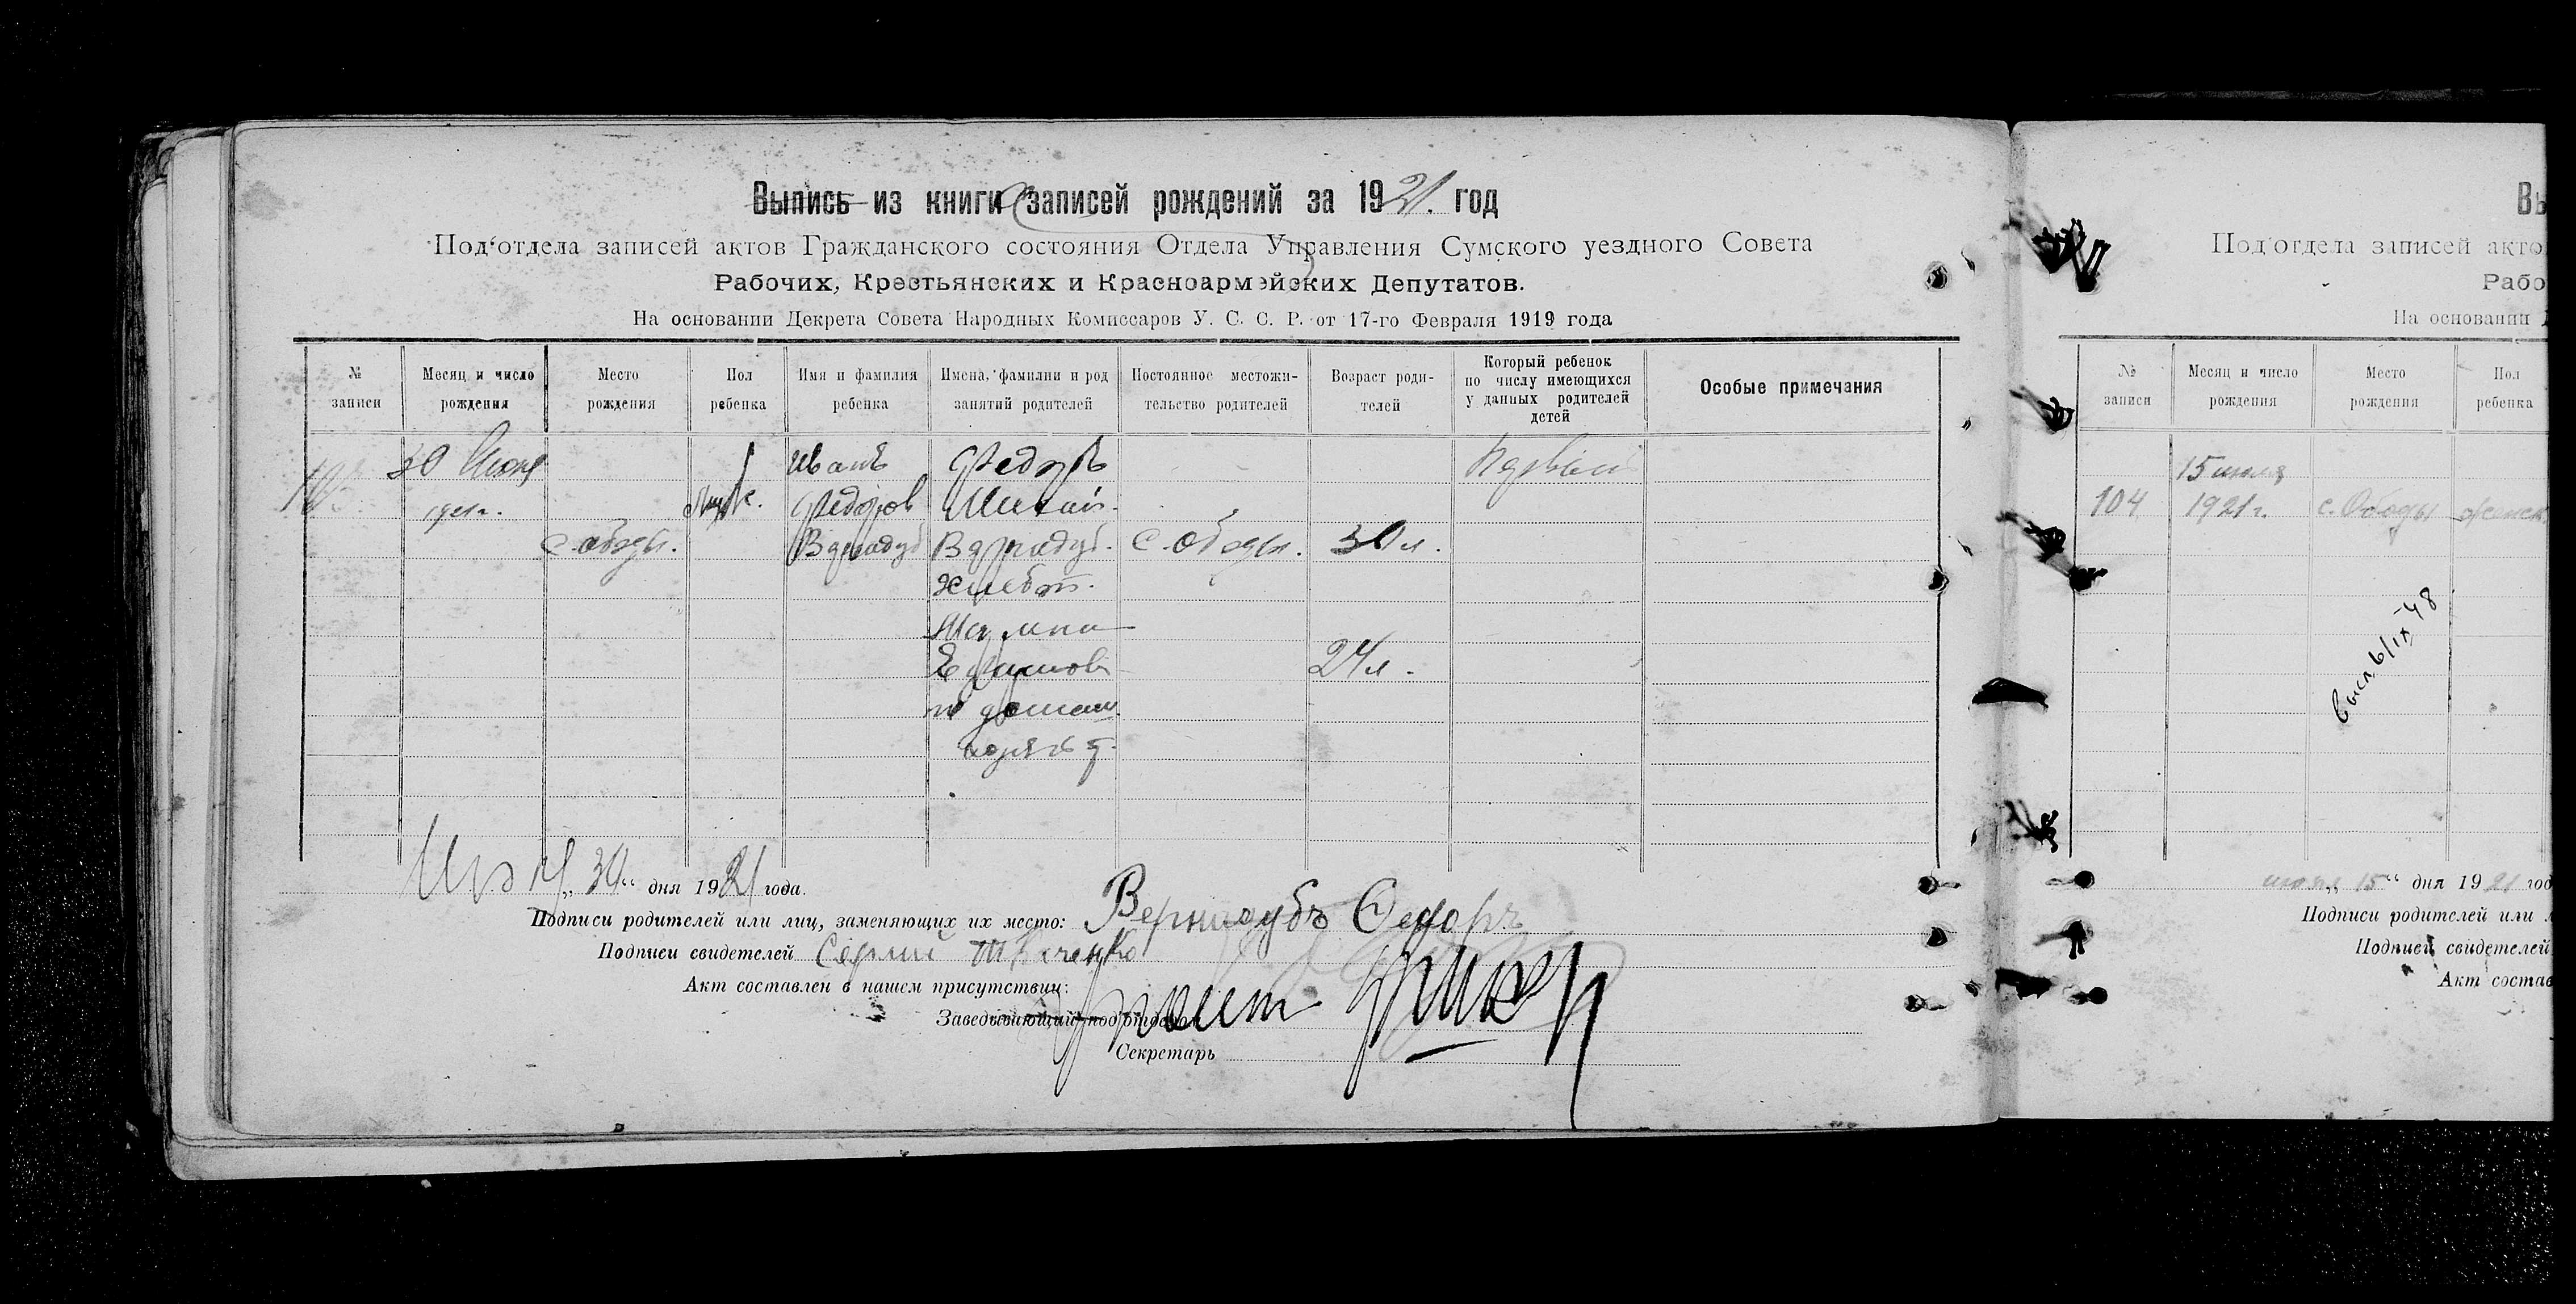 Выпись из книги записей рождений за 1921. год
Под'отдела записей актов Гражданского состояния Отдела Управления Сумского уездного Совета
Рабочих, Крестьянских и Красноармейских Депутатов.
На основании Декрета Совета Народных Комиссаров У. С. С. Р. от 17-го Февраля 1919 года
№ записи
Месяц и число рождения
Место рождения
Пол ребенка
Имя и фамилия ребенка
Имена, фамилии и род занятий родителей
Постоянное местожительство родителей
Возраст родителей
Который ребенок по числу имеющихся у данных родителей детей
Особые примечания
30 Июня
1921 г.
с. Ободы.
Муж.
Иванъ
Федоров
Вернидуб
Федоръ
Вернидуб.
Хлебоп.
24 л.
с. Ободы.
30 л.
Первый
30 дня 1921 года.
Подписи родителей или лиц, заменяющих их место: Вернидубъ Федоръ
Подписи свидетелей Сергий Ткаченко
Акт составлен в нашем присутствии:
Заведывающий под'отделом
Секретарь
Вы
Под'отдела записей акто
Рабо
На основании
№ записи
Месяц и число рождения
Место рождения
Пол ребенка
104
15 июля
1921 г.
с. Ободы
женск
Высл. 6/IX-48
июля 15 дня 1921 год
Подписи родителей или л
Подписи свидетелей
Акт состав